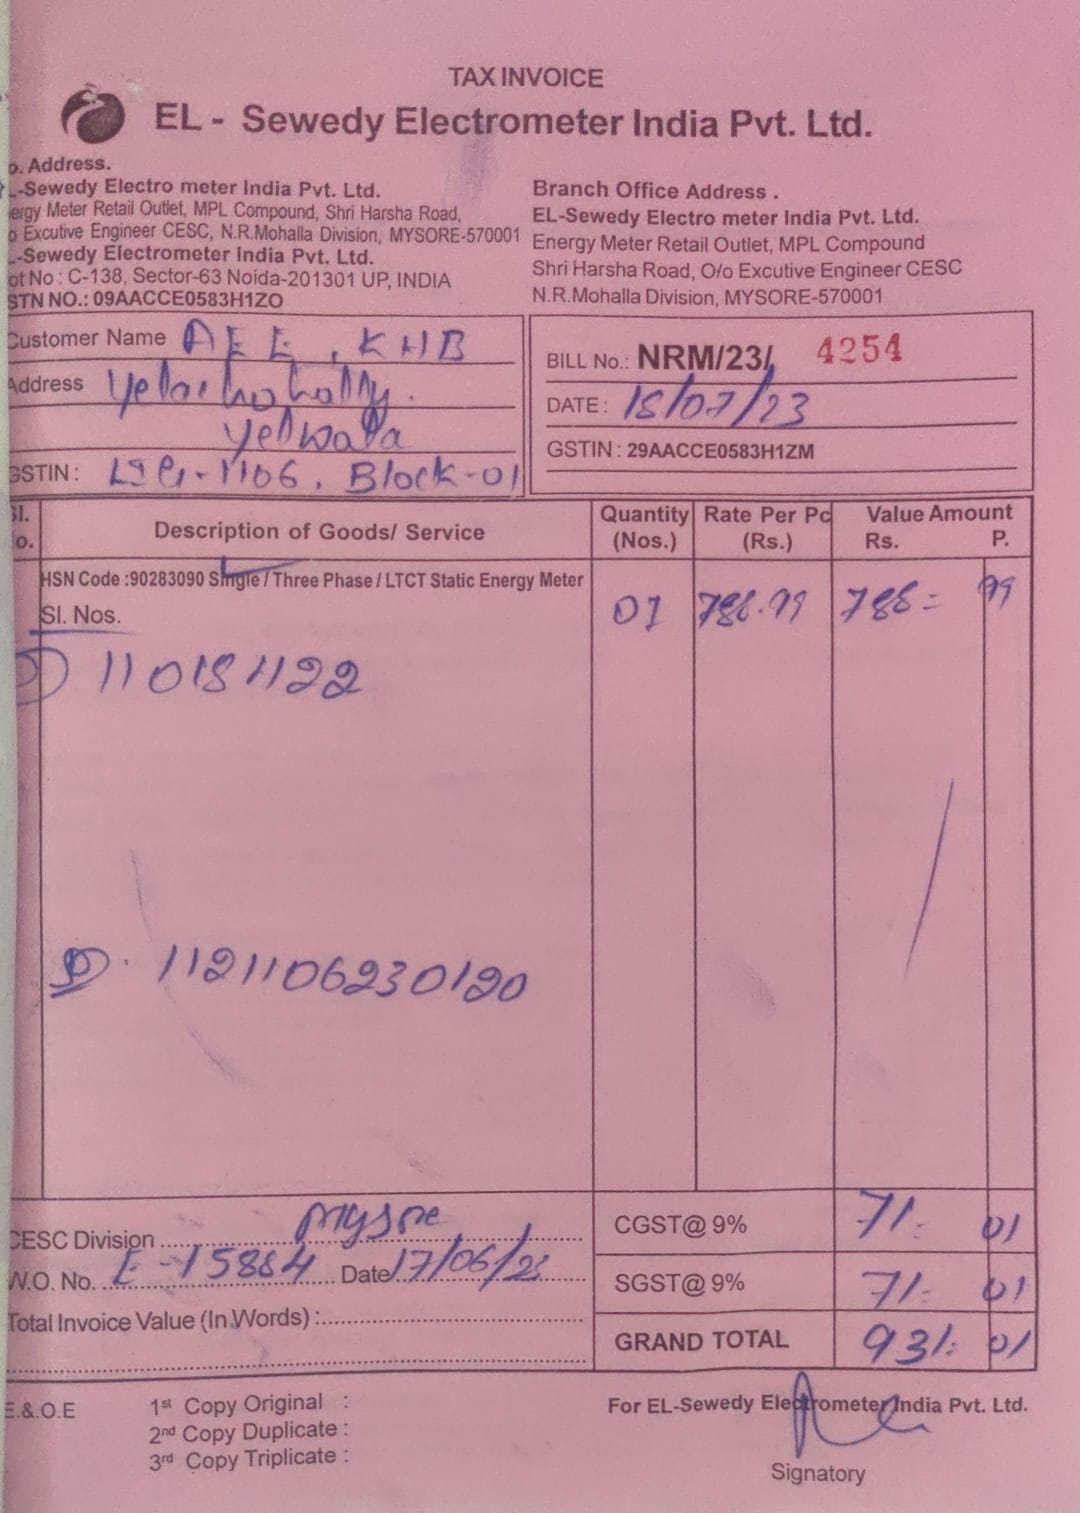 TAX INVOICE
EL - Sewedy Electrometer India Pvt. Ltd.
o. Address.
L-Sewedy Electro meter India Pvt. Ltd.
ergy Meter Retail Outlet, MPL Compound, Shri Harsha Road,
o Excutive Engineer CESC, N.R.Mohalla Division, MYSORE-570001
L-Sewedy Electrometer India Pvt. Ltd.
ot No : C-138, Sector-63 Noida-201301 UP, INDIA
STN NO.: 09AACCE0583H1ZO
Branch Office Address .
EL-Sewedy Electro meter India Pvt. Ltd.
Energy Meter Retail Outlet, MPL Compound
Shri Harsha Road, O/o Excutive Engineer CESC
N.R.Mohalla Division, MYSORE-570001
Customer Name AEE, KHB
Address
Yelwala
GSTIN : 1106, Block-01
BILL No.: NRM/23/ 4254
DATE : 15/07/23
GSTIN : 29AACCE0583H1ZM
Sl. No. Description of Goods/ Service Quantity (Nos.) Rate Per Pc (Rs.) Value Amount Rs. P.
HSN Code :90283090 Single / Three Phase / LTCT Static Energy Meter
Sl. Nos. 01 788.99 788= 99
110181122
1121106230120
CESC Division Mysore
CGST@ 9% 71- 01
W.O. No. E-15884 Date 17/06/23
SGST@ 9% 71- 01
Total Invoice Value (In Words) :
GRAND TOTAL 931- 01
E.&.O.E
1st Copy Original :
2nd Copy Duplicate :
3rd Copy Triplicate :
For EL-Sewedy Electrometer India Pvt. Ltd.
Signatory